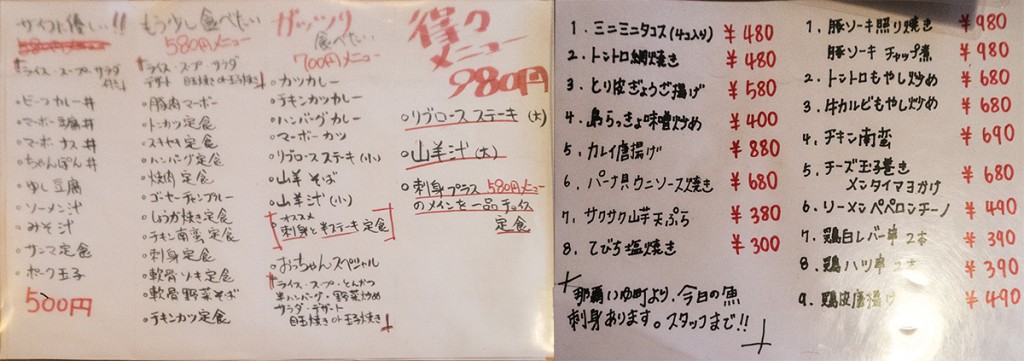 サイフに優しい!!
580円メニュー
ライス・スープ・サラダ
付
。ビーフカレー丼
。マーボー豆腐丼
。マーボーナス丼
。ちゃんぽん丼
。ゆし豆腐
。ソーメン汁
。みそ汁
。サンマ定食
。ポーク玉子
500円
もう少し食べたい
580円メニュー
ライス・スープ・サラダ
デザート 目玉焼きor玉子焼き
。豚肉マーボー
。トンカツ定食
。スキヤキ定食
。ハンバーグ定食
。焼肉定食
。ゴーヤーチャンプルー
。しょうが焼き定食
。チキン南蛮定食
。刺身定食
。軟骨ソーキ定食
。軟骨野菜そば
。チキンカツ定食
ガッツリ
食べたい
700円メニュー
。カツカレー
。チキンカツカレー
。ハンバーグカレー
。マーボーカツ
。リブロースステーキ(小)
。山羊そば
。山羊汁(小)
オススメ
。刺身と半ステーキ定食
。おっちゃんスペシャル
ライス・スープ・とんかつ
半ハンバーグ・野菜炒め
サラダ・デザート
目玉焼きor玉子焼き
得々
メニュー
980円
。リブロースステーキ(大)
。山羊汁(大)
。刺身プラス580円メニュー
のメインを一品チョイス
定食
1. ミニミニタコス(4コ入り) ¥480
2. トントロ網焼き ¥480
3. とり皮ぎょうざ揚げ ¥580
4. 島らっきょ味噌炒め ¥400
5. カレイ唐揚げ ¥880
6. パーナ貝ウニソース焼き ¥680
7. サクサク山芋天ぷら ¥380
8. てびち塩焼き ¥300
那覇いゆ町より、今日の魚
刺身あります。スタッフまで!!
1. 豚ソーキ照り焼き ¥980
豚ソーキ チャップ煮 ¥980
2. トントロもやし炒め ¥680
3. 牛カルビもやし炒め ¥680
4. チキン南蛮 ¥690
5. チーズ玉子巻き
メンタイマヨかけ ¥680
6. ソーメンペペロンチーノ ¥490
7. 鶏白レバー串 2本 ¥390
8. 鶏ハツ串 2本 ¥390
9. 鶏皮唐揚げ ¥490